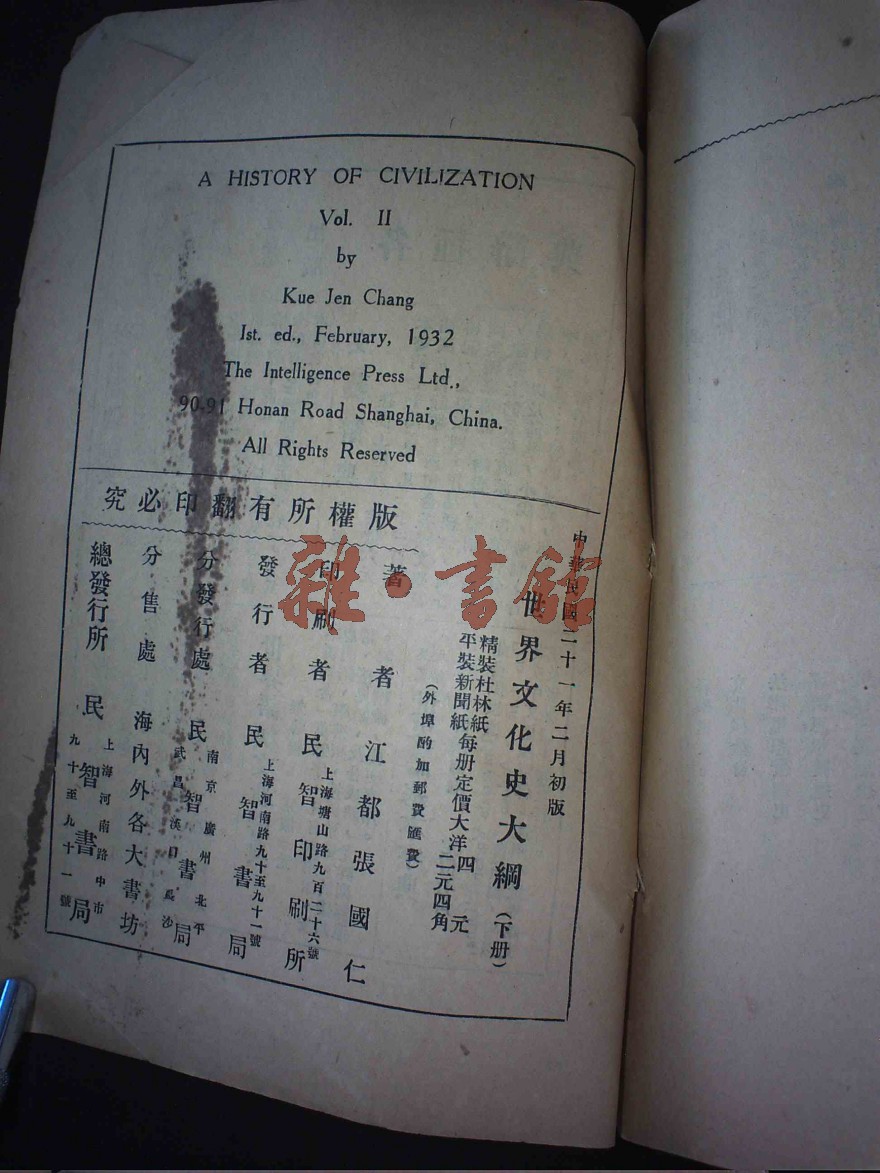 A HISTORY OF CIVILIZATION
Vol. II
by
Kue Jen Chang
Ist. ed., February, 1932
The Intelligence Press Ltd.,
90-91 Honan Road Shanghai, China.
All Rights Reserved
版權所有翻印必究
中華民國二十一年二月初版
世界文化史大綱(下册)
精裝杜林紙
平裝新聞紙
每册定價大洋
四元
二元四角
(外埠酌加郵費匯費)
著者 江都張國仁
印刷者 民智印刷所
上海塘山路九百二十六號
發行者 民智書局
上海河南路九十至九十一號
分發行處 民智書局
南京 廣州 北平
武昌 漢口 長沙
分售處 海內外各大書坊
總發行所 民智書局
上海河南路中市
九十至九十一號
雜·書館